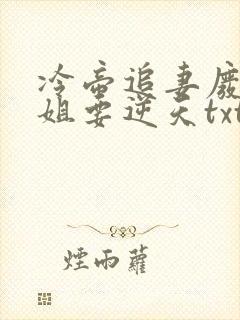 冷帝追妻廢
姐要逆天txt
煙雨蘿